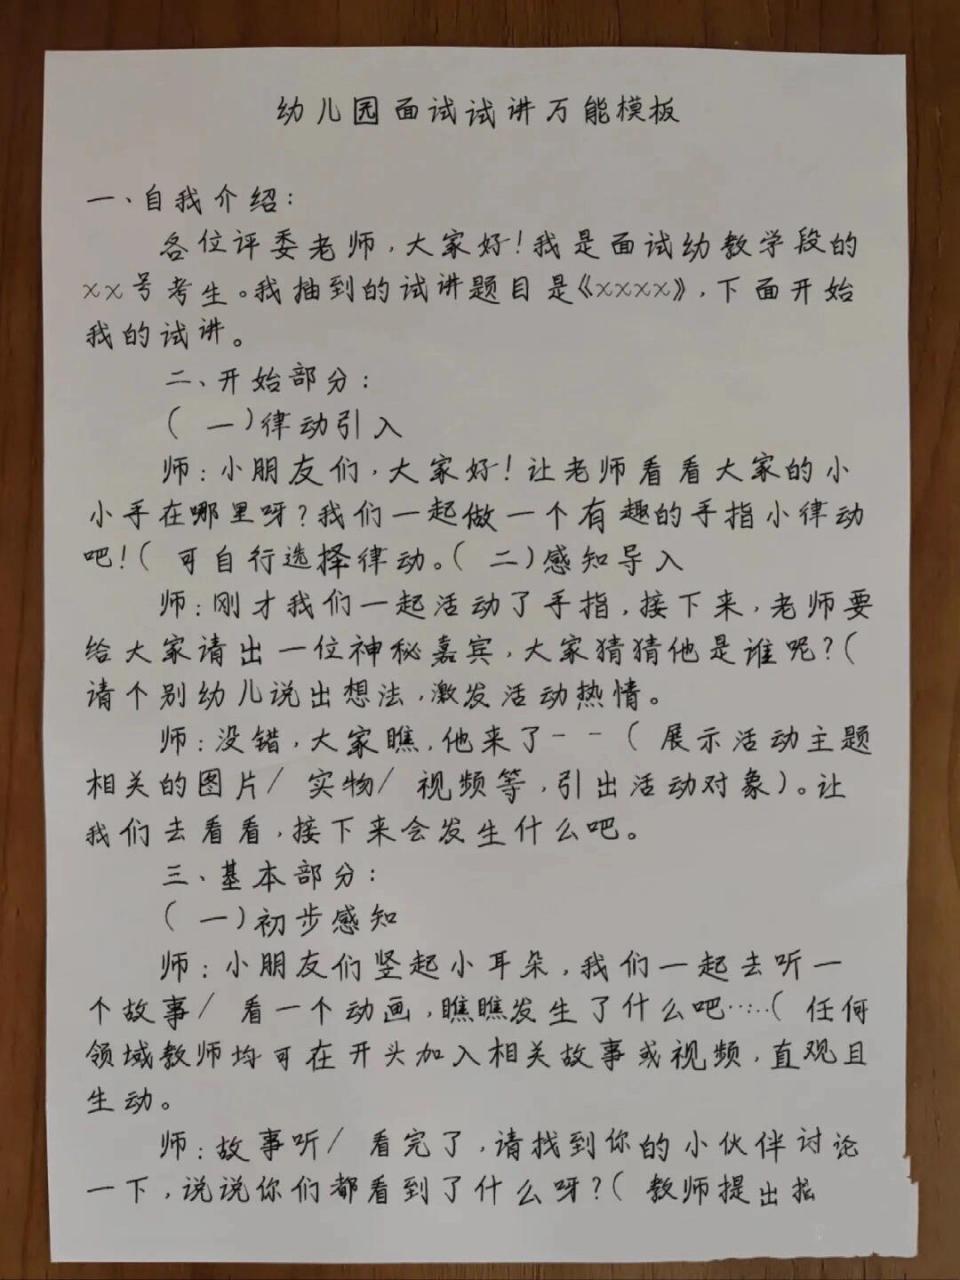 幼儿园面试试讲万能模板
一、自我介绍：
各位评委老师，大家好！我是面试幼教学段的
××号考生。我抽到的试讲题目是《××××》，下面开始
我的试讲。
二、开始部分：
（一）律动引入
师：小朋友们，大家好！让老师看看大家的小
小手在哪里呀？我们一起做一个有趣的手指小律动
吧！（可自行选择律动。（二）感知导入
师：刚才我们一起活动了手指，接下来，老师要
给大家请出一位神秘嘉宾，大家猜猜他是谁呢？（
请个别幼儿说出想法，激发活动热情。
师：没错，大家瞧，他来了--（展示活动主题
相关的图片/实物/视频等，引出活动对象）。让
我们去看看，接下来会发生什么吧。
三、基本部分：
（一）初步感知
师：小朋友们竖起小耳朵，我们一起去听一
个故事/看一个动画，瞧瞧发生了什么吧……（任何
领域教师均可在开头加入相关故事或视频，直观且
生动。
师：故事听/看完了，请找到你的小伙伴讨论
一下，说说你们都看到了什么呀？（教师提出